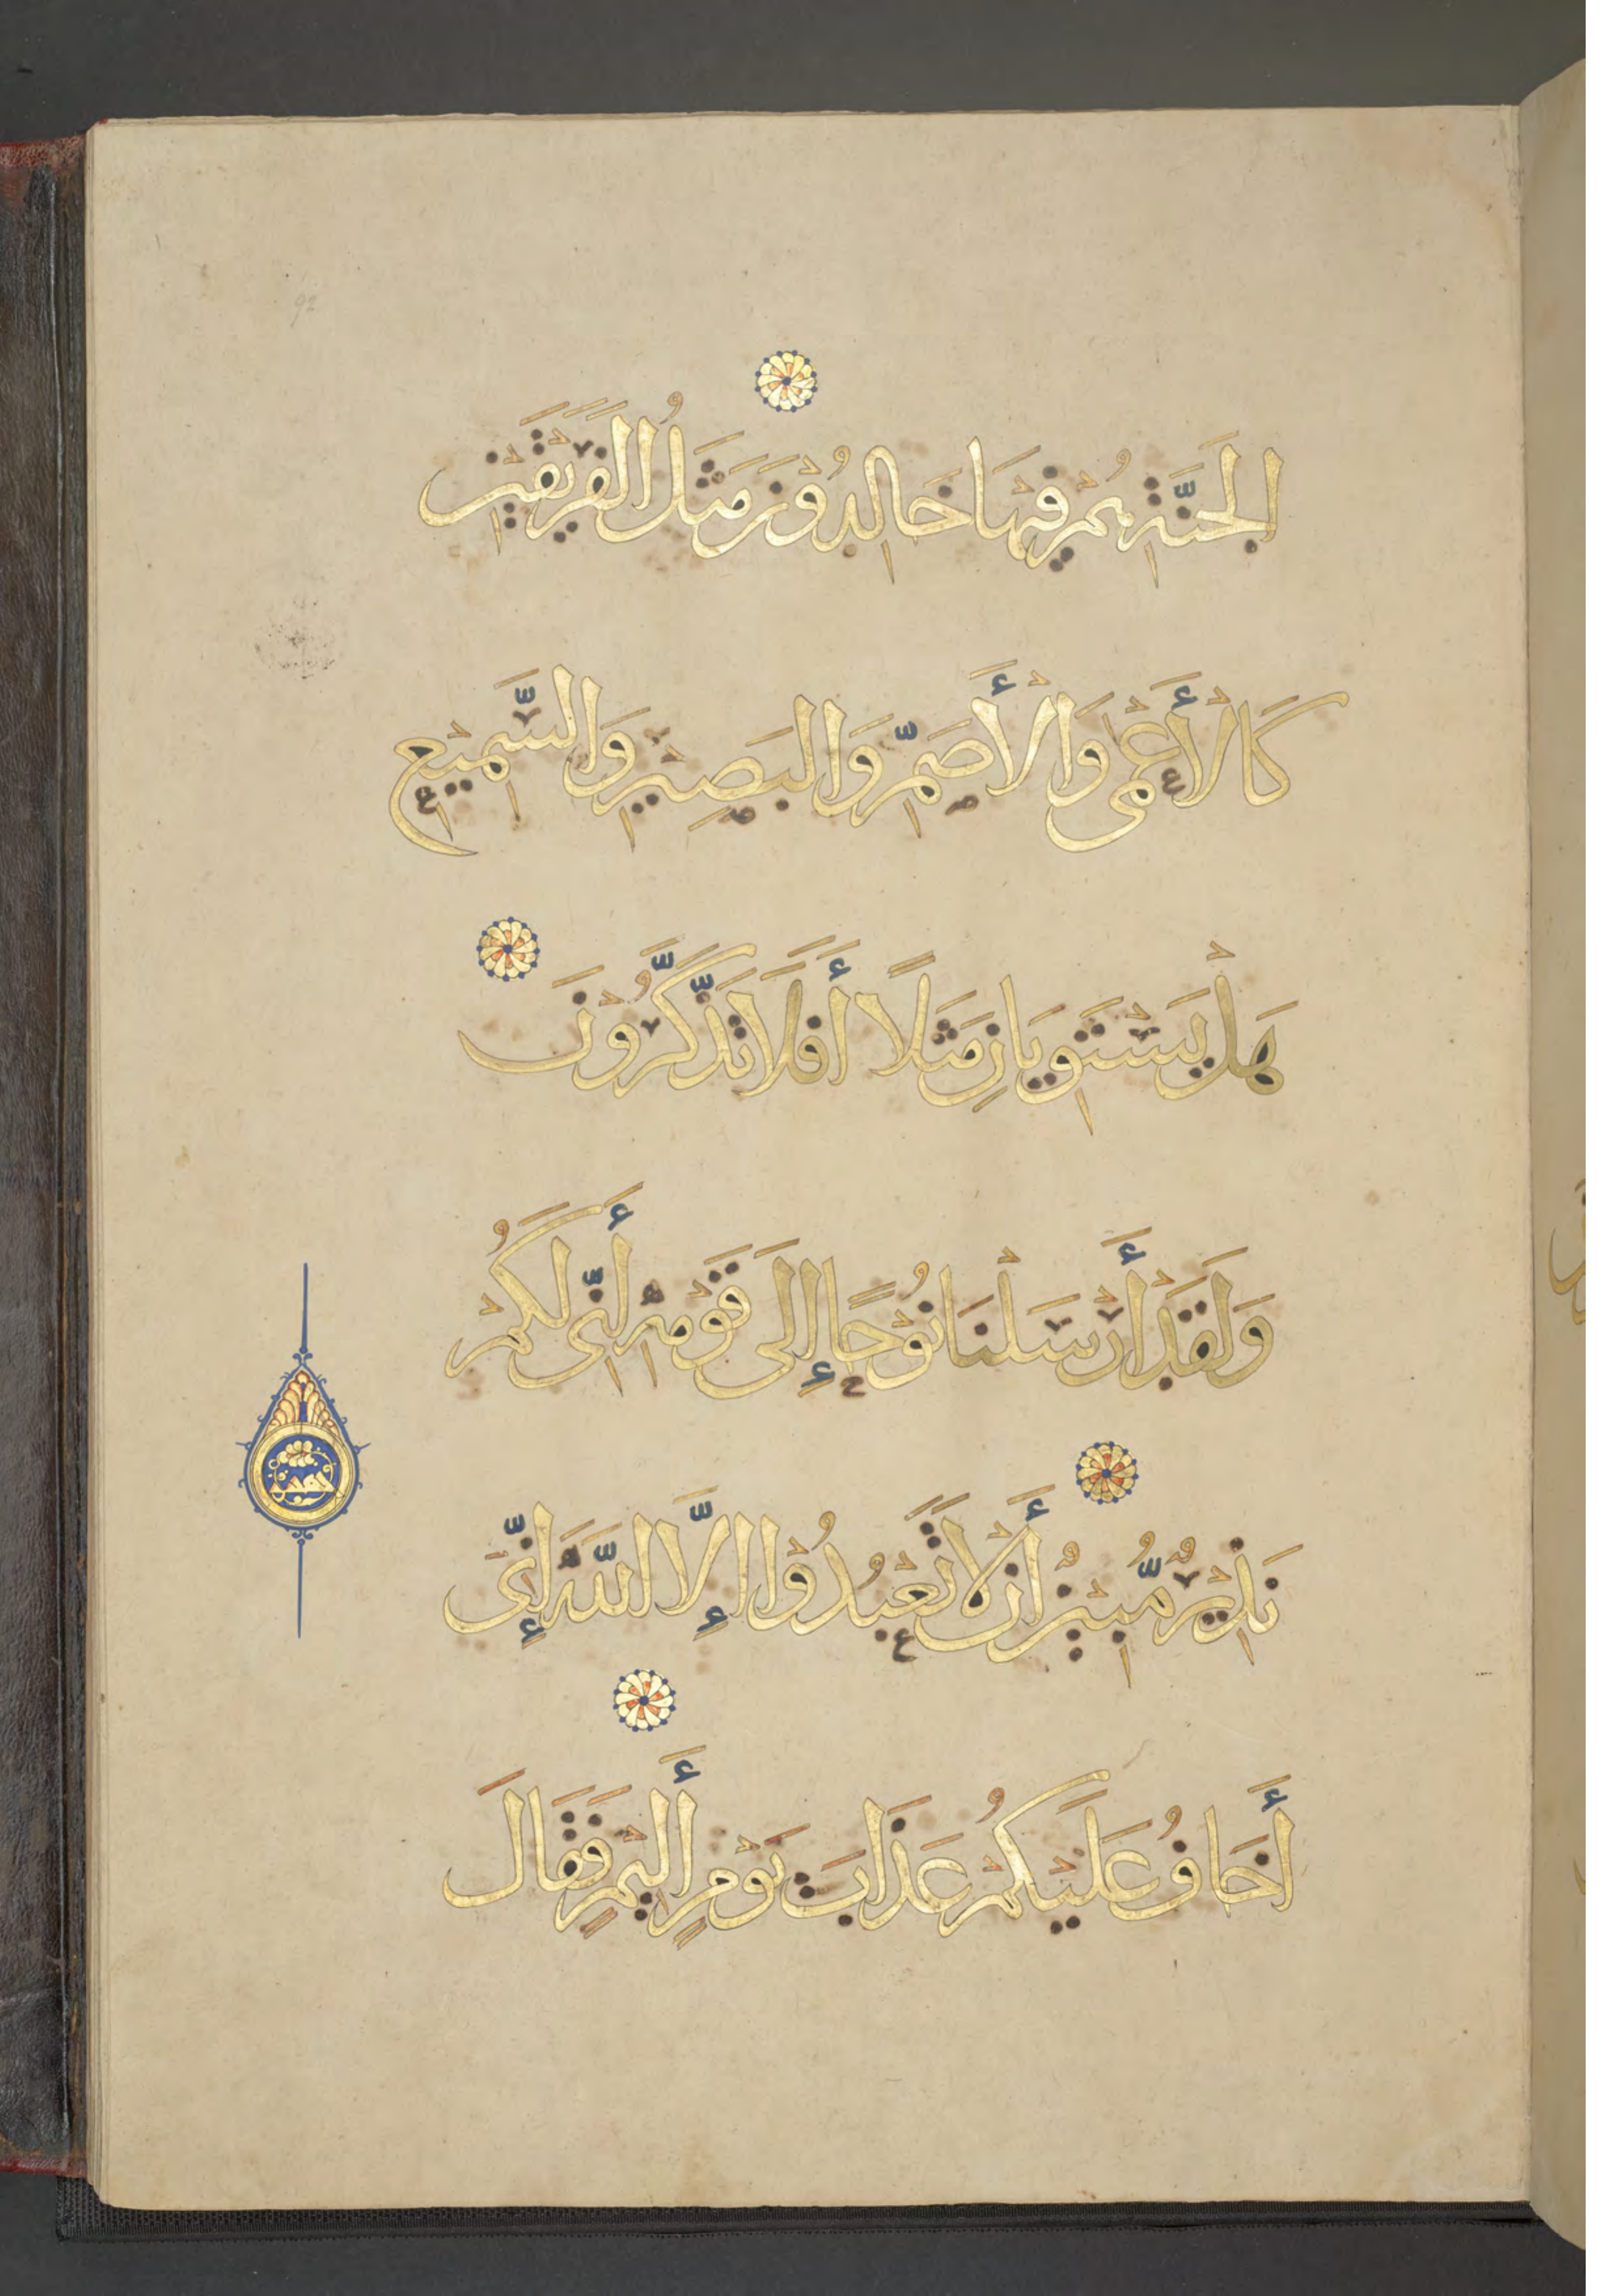 92
الْجَنَّةِ هُمْ فِيهَا خَالِدُونَ مَثَلُ الْفَرِيقَيْنِ
كَالْأَعْمَى وَالْأَصَمِّ وَالْبَصِيرِ وَالسَّمِيعِ
هَلْ يَسْتَوِيَانِ مَثَلًا أَفَلَا تَذَّكَّرُونَ
وَلَقَدْ أَرْسَلْنَا نُوحًا إِلَى قَوْمِهِ أَنِّى لَكُمْ
نَذِيرٌ مُّبِينٌ أَن لَّا تَعْبُدُوا إِلَّا اللَّهَ إِنِّىَ
أَخَافُ عَلَيْكُمْ عَذَابَ يَوْمٍ أَلِيمٍ فَقَالَ